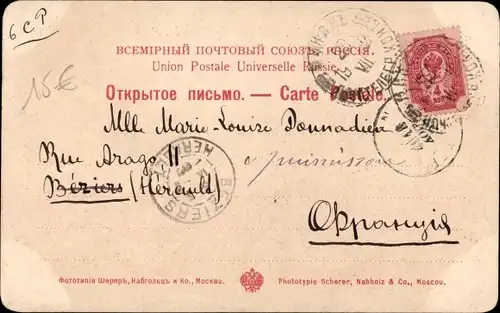 6 CP
15 €
ВСЕМІРНЫЙ ПОЧТОВЫЙ СОЮЗЪ. РОССІЯ.
Union Postale Universelle Russie.
Открытое письмо. — Carte Postale.
Mlle Marie-Louise Donnadieu
Rue Arago 11
Béziers (Hérault)
BEZIERS
Франція
Фототипія Шереръ, Набгольцъ и Ко., Москва.
Phototypie Scherer, Nabholz & Co., Moscou.